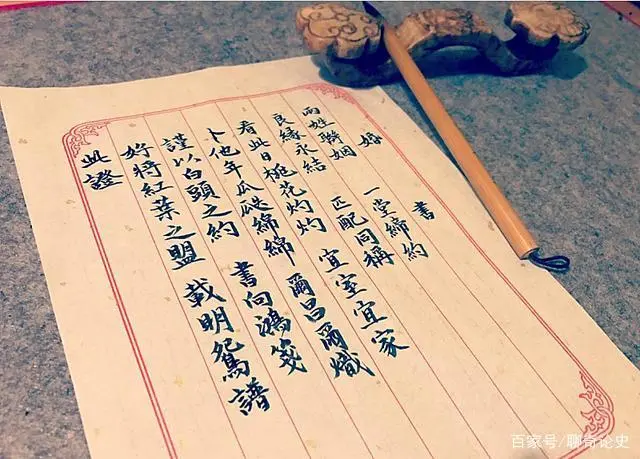 婚 書
兩姓聯姻 一堂締約
良緣永結 匹配同稱
看此日桃花灼灼 宜室宜家
卜他年瓜瓞綿綿 爾昌爾熾
謹以白頭之約 書向鴻箋
好將紅葉之盟 載明鴛譜
此證
百家号/聊奇论史